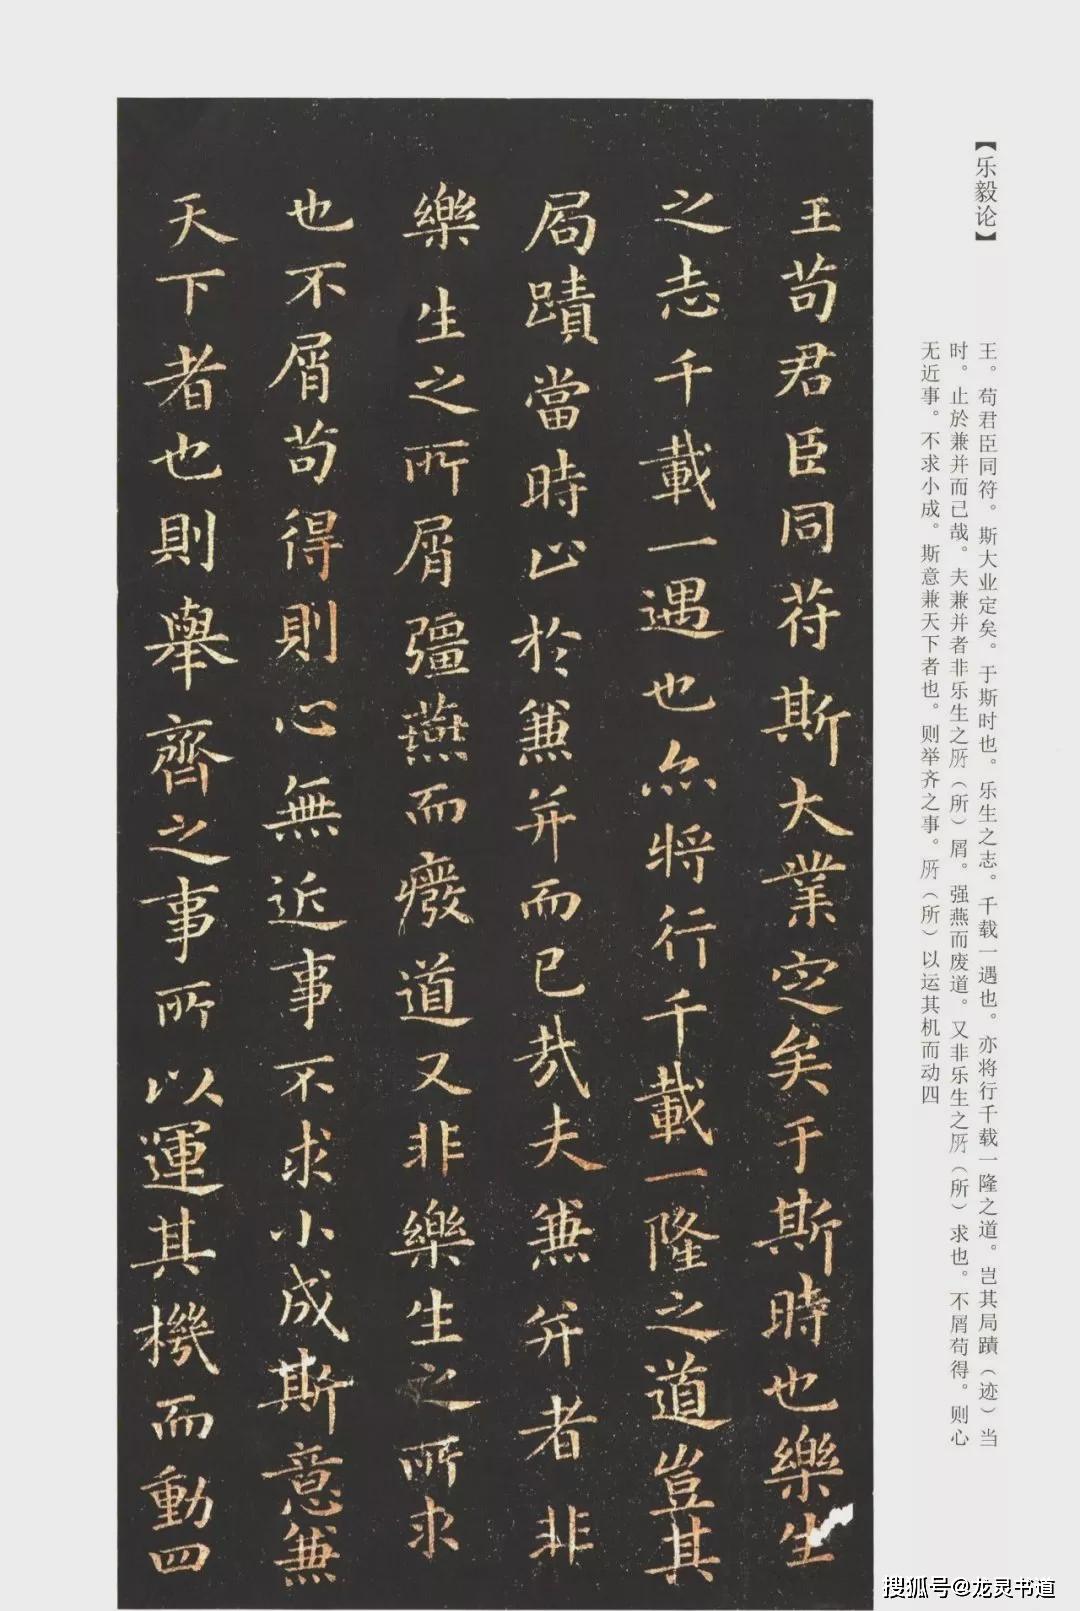 【乐毅论】
王。苟君臣同符。斯大业定矣。于斯时也。乐生之志。千载一遇也。亦将行千载一隆之道。岂其局蹟（迹）当
时。止於兼并而已哉。夫兼并者非乐生之所（所）屑。强燕而废道。又非乐生之所（所）求也。不屑苟得。则心
无近事。不求小成。斯意兼天下者也。则举齐之事。所（所）以运其机而动四
王苟君臣同苻斯大業定矣于斯時也樂生
之志千載一遇也亦将行千載一隆之道豈其
局蹟當時止於兼并而已哉夫兼并者非
樂生之所屑彊燕而癈道又非樂生之所求
也不屑苟得則心無近事不求小成斯意兼
天下者也則舉齊之事所以運其機而動四
搜狐号@龙灵书道